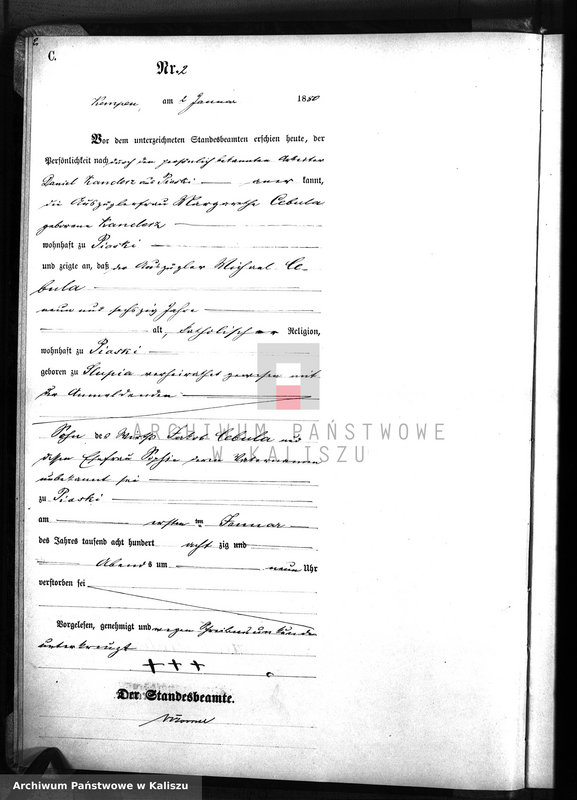 2
C.
Nr. 2
Kempen, am 2 Januar 1880
Vor dem unterzeichneten Standesbeamten erschien heute, der
Persönlichkeit nach durch den persönlich bekannten Arbeiter
Daniel Kandorz aus Piaski aner kannt,
die Auszüglerfrau Margarethe Cebula
geborene Kandorz
wohnhaft zu Piaski
und zeigte an, daß der Auszügler Michael Ce-
bula
neun und sechszig Jahre
alt, katholischer Religion,
wohnhaft zu Piaski
geboren zu Slupia verheirathet gewesen mit
der Anmeldenden
ARCHIWUM PAŃSTWOWE
W KALISZU
Sohn des Wirths Jakob Cebula und
dessen Ehefrau Sophie deren Vatername
unbekannt sei
zu Piaski
am ersten ten Januar
des Jahres tausend acht hundert acht zig und
Abends um neun Uhr
verstorben sei
Vorgelesen, genehmigt und wegen Schreibensunkunde
unterkreuzt
+++
Der Standesbeamte.
Archiwum Państwowe w Kaliszu